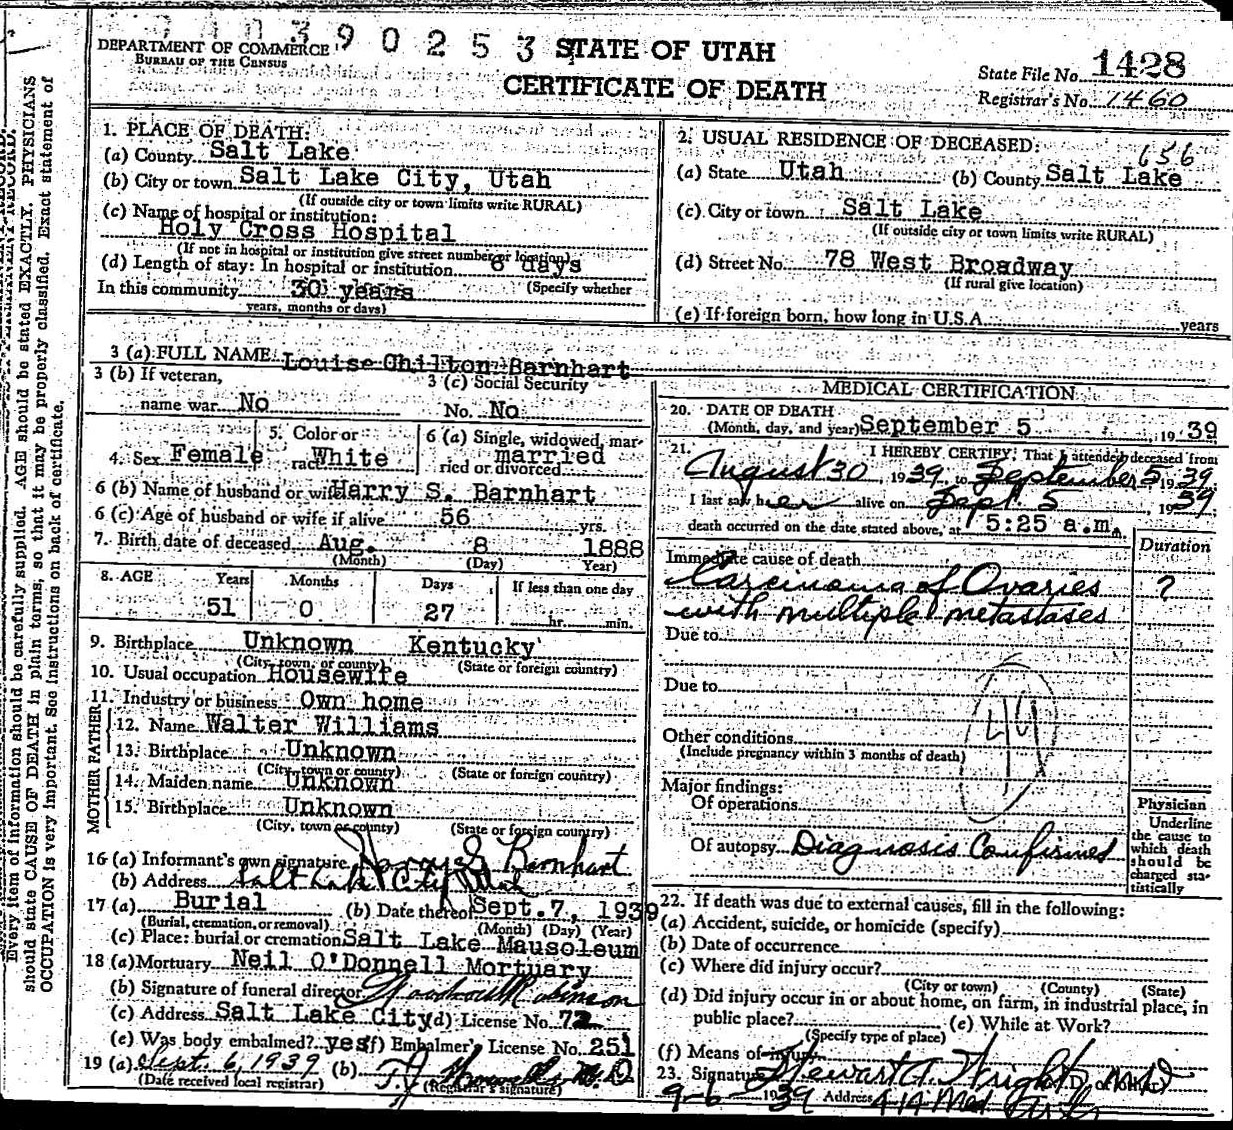 390253 STATE OF UTAH
DEPARTMENT OF COMMERCE
BUREAU OF THE CENSUS
CERTIFICATE OF DEATH
State File No. 1428
Registrar's No. 1460
1. PLACE OF DEATH:
(a) County Salt Lake
(b) City or town Salt Lake City, Utah
(If outside city or town limits write RURAL)
(c) Name of hospital or institution:
Holy Cross Hospital
(If not in hospital or institution give street number or location)
(d) Length of stay: In hospital or institution 6 days
(Specify whether
In this community 30 years
years, months or days)
2. USUAL RESIDENCE OF DECEASED:
656
(a) State Utah (b) County Salt Lake
(c) City or town Salt Lake
(If outside city or town limits write RURAL)
(d) Street No. 78 West Broadway
(If rural give location)
(e) If foreign born, how long in U.S.A. years
3 (a) FULL NAME Louise Chilton Barnhart
3 (b) If veteran, name war No
3 (c) Social Security No. No
4. Sex Female
5. Color or race White
6 (a) Single, widowed, married or divorced married
6 (b) Name of husband or wife Harry S. Barnhart
6 (c) Age of husband or wife if alive 56 yrs.
7. Birth date of deceased Aug. 8 1888
(Month) (Day) Year)
8. AGE Years Months Days If less than one day
51 0 27 hr. min.
9. Birthplace Unknown Kentucky
(City, town, or county) (State or foreign country)
10. Usual occupation Housewife
11. Industry or business Own home
FATHER
12. Name Walter Williams
13. Birthplace Unknown
(City, town or county) (State or foreign country)
MOTHER
14. Maiden name Unknown
15. Birthplace Unknown
(City, town or county) (State or foreign country)
16 (a) Informant's own signature Harry S Barnhart
(b) Address Salt Lake City Utah
17 (a) Burial (b) Date thereof Sept. 7, 1939
(Burial, cremation, or removal) (Month) (Day) (Year)
(c) Place: burial or cremation Salt Lake Mausoleum
18 (a) Mortuary Neil O'Donnell Mortuary
(b) Signature of funeral director Robinson
(c) Address Salt Lake City (d) License No. 72
(e) Was body embalmed? yes (f) Embalmer's License No. 251
19 (a) Sept. 6, 1939 (b) M.D
(Date received local registrar) (Registrar's signature)
MEDICAL CERTIFICATION
20. DATE OF DEATH
(Month, day, and year) September 5 19 39
21. I HEREBY CERTIFY, That I attended deceased from
August 30, 1939, to September 5 1939
I last saw her alive on Sept. 5, 1939
death occurred on the date stated above, at 5:25 a.m.
Duration
Immediate cause of death
Carcinoma of Ovaries ?
with multiple metastases
Due to
Due to
49
Other conditions
(Include pregnancy within 3 months of death)
Major findings:
Of operations
Of autopsy Diagnosis Confirmed
Physician
Underline
the cause to
which death
should be
charged sta-
tistically
22. If death was due to external causes, fill in the following:
(a) Accident, suicide, or homicide (specify)
(b) Date of occurrence
(c) Where did injury occur?
(City or town) (County) (State)
(d) Did injury occur in or about home, on farm, in industrial place, in
public place? (e) While at Work?
(Specify type of place)
(f) Means of injury
23. Signature Stewart A. Wright, MD
9-6- 1939 Address 414 Med Arts
Every item of information should be carefully supplied. AGE should be stated EXACTLY. PHYSICIANS
should state CAUSE OF DEATH in plain terms, so that it may be properly classified. Exact statement of
OCCUPATION is very important. See instructions on back of certificate.